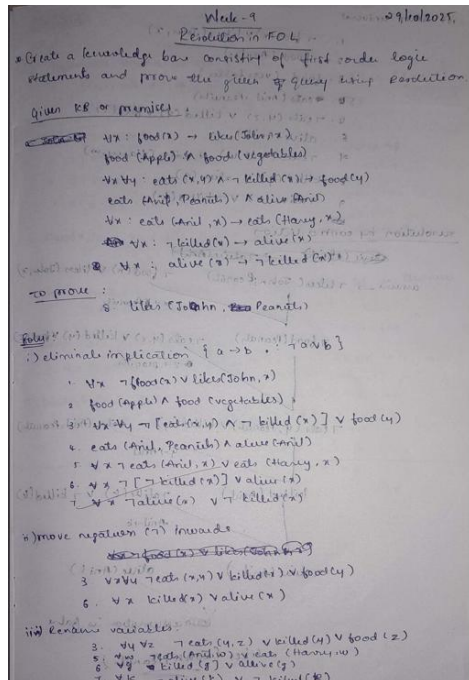 Week - 9 29/10/2025.
Resolution in FOL
* Create a knowledge base consisting of first order logic
statements and prove the given query using Resolution
Given KB or premises:
∀x : food(x) → likes(John, x)
food (Apple) ∧ food (vegetables)
∀x ∀y : eats (x,y) ∧ ¬ killed (x) → food(y)
eats (Anil, Peanuts) ∧ alive (Anil)
∀x : eats (Anil, x) → eats (Harry, x)
∀x : ¬ killed(x) → alive(x)
∀x : alive (x) → ¬ killed(x)
To prove :
8 likes (John, Peanuts)
Soln:
i) eliminate implication { a → b : ¬ a ∨ b }
1. ∀x ¬ food(x) ∨ likes(John, x)
2 food(Apple) ∧ food (vegetables)
3 ∀x ∀y ¬ [eats(x,y) ∧ ¬ killed (x)] ∨ food(y)
4. eats (Anil, Peanuts) ∧ alive (Anil)
5. ∀x ¬ eats (Anil, x) ∨ eats (Harry, x)
6. ∀x ¬ [¬ killed(x)] ∨ alive (x)
7 ∀x ¬ alive(x) ∨ ¬ killed(x)
ii) move negation (¬) inwards
3 ∀x ∀y ¬ eats (x,y) ∨ killed(x) ∨ food(y)
6. ∀x killed(x) ∨ alive (x)
iii) Rename variables
3. ∀y ∀z ¬ eats (y,z) ∨ killed(y) ∨ food (z)
5 ∀w ¬ eats (Anil, w) ∨ eats (Harry, w)
6 ∀g killed (g) ∨ alive (g)
7 ∀k ¬ alive (k) ∨ ¬ killed(k)